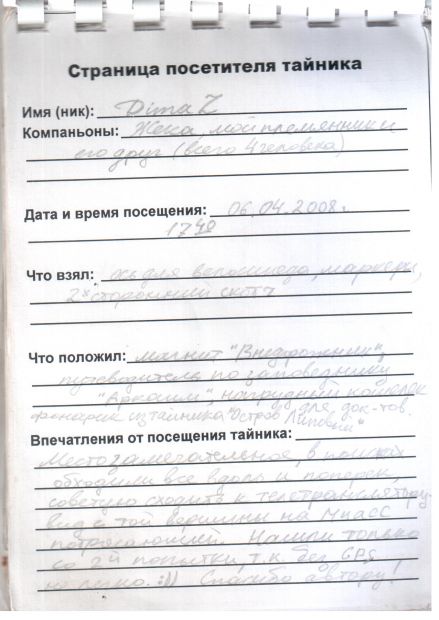 Страница посетителя тайника
Имя (ник): DimaZ
Компаньоны: Жека, мой племянник и
его друг (всего 4 человека)
Дата и время посещения: 06.04.2008г.
17 40
Что взял: для велосипеда, маркеры,
2х сторонний скотч
Что положил: магнит "Внедорожник",
путеводитель по заповеднику
"Аркаим", нагрудный кошелек
для док-тов.
фонарик из тайника "Остров Липовый"
Впечатления от посещения тайника:
Место замечательное, в поисках
обходили все вдоль и поперек,
советую сходить к телетранслятору,
вид с той вершины на Миасс
потрясающий. Нашли только
со 2й попытки, т.к. без GPS
не легко. :)) Спасибо автору!